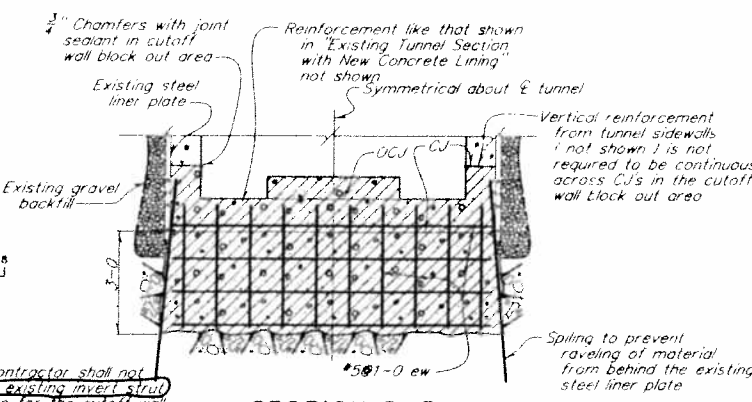 3/4" Chamfers with joint
sealant in cutoff
wall block out area
Reinforcement like that shown
in "Existing Tunnel Section
with New Concrete Lining"
not shown
Existing steel
liner plate
Symmetrical about ℄ tunnel
Vertical reinforcement
from tunnel sidewalls
( not shown ) is not
required to be continuous
across CJ's in the cutoff
wall block out area
OCJ
CJ
Existing gravel
backfill
3-0
ontractor shall not
existing invert strut
for the cutoff wall
1-0 ew
Spiling to prevent
raveling of material
from behind the existing
steel liner plate
SECTION